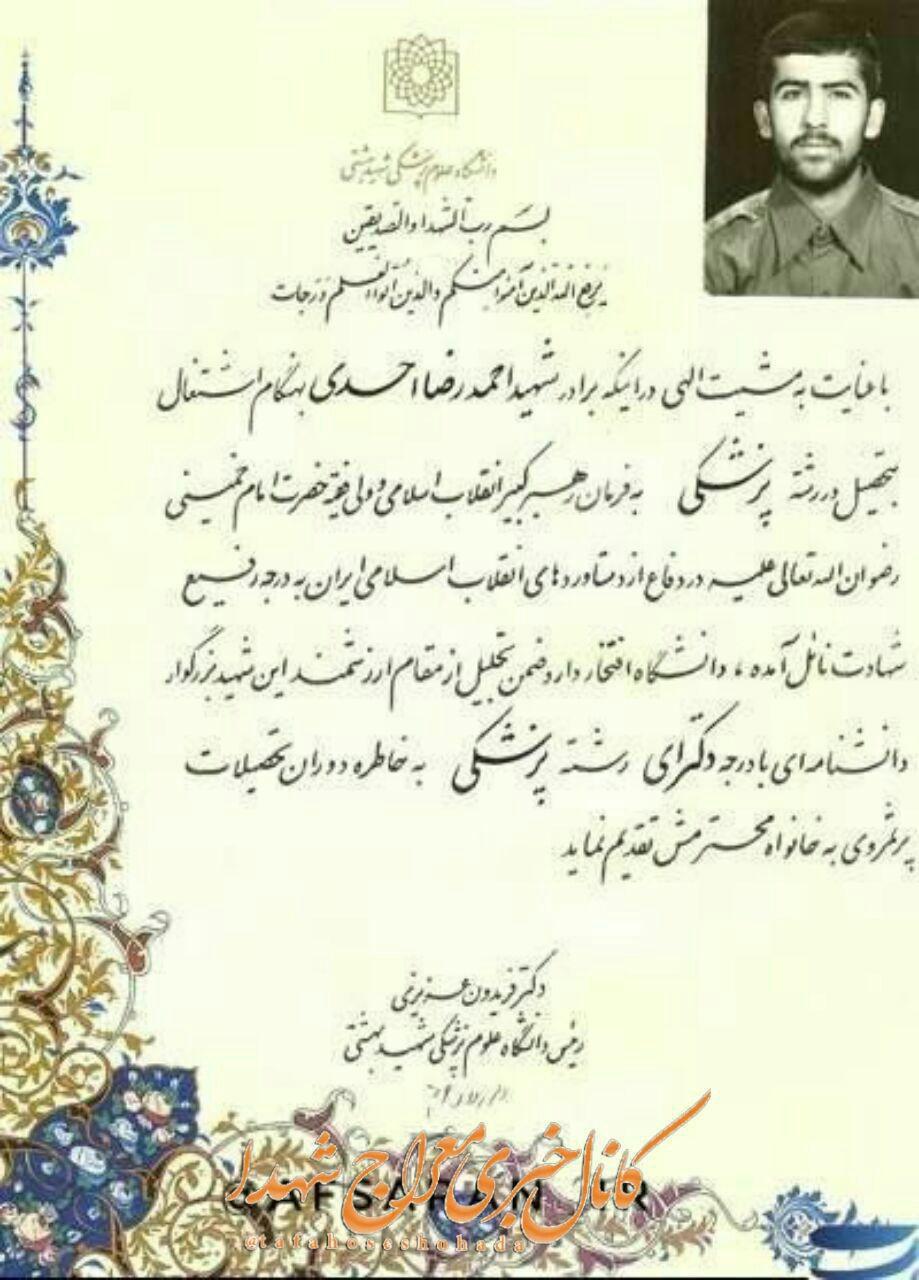 دانشگاه علوم پزشکی شهید بهشتی
بسم رب الشهدا والصدیقین
یرفع الله الذین آمنوا منکم والذین اوتوا العلم درجات
با عنایت به مشیت الهی در اینکه برادر شهید احمد رضا احدی بهنگام اشتغال
بتحصیل در رشته پزشکی به فرمان رهبر کبیر انقلاب اسلامی و ولی فقیه حضرت امام خمینی
رضوان الله تعالی علیه در دفاع از دستاوردهای انقلاب اسلامی ایران به درجه رفیع
شهادت نائل آمده ، دانشگاه افتخار دارد ضمن تجلیل از مقام ارزشمند این شهید بزرگوار
دانشنامه ای با درجه دکترای رشته پزشکی به خاطره دوران تحصیلات
پرثمروی به خانواه محترمش تقدیم نماید
دکتر فریدون عزیزی
رئیس دانشگاه علوم پزشکی شهید بهشتی
کانال خبری معراج شهدا
@tafahoseshohada